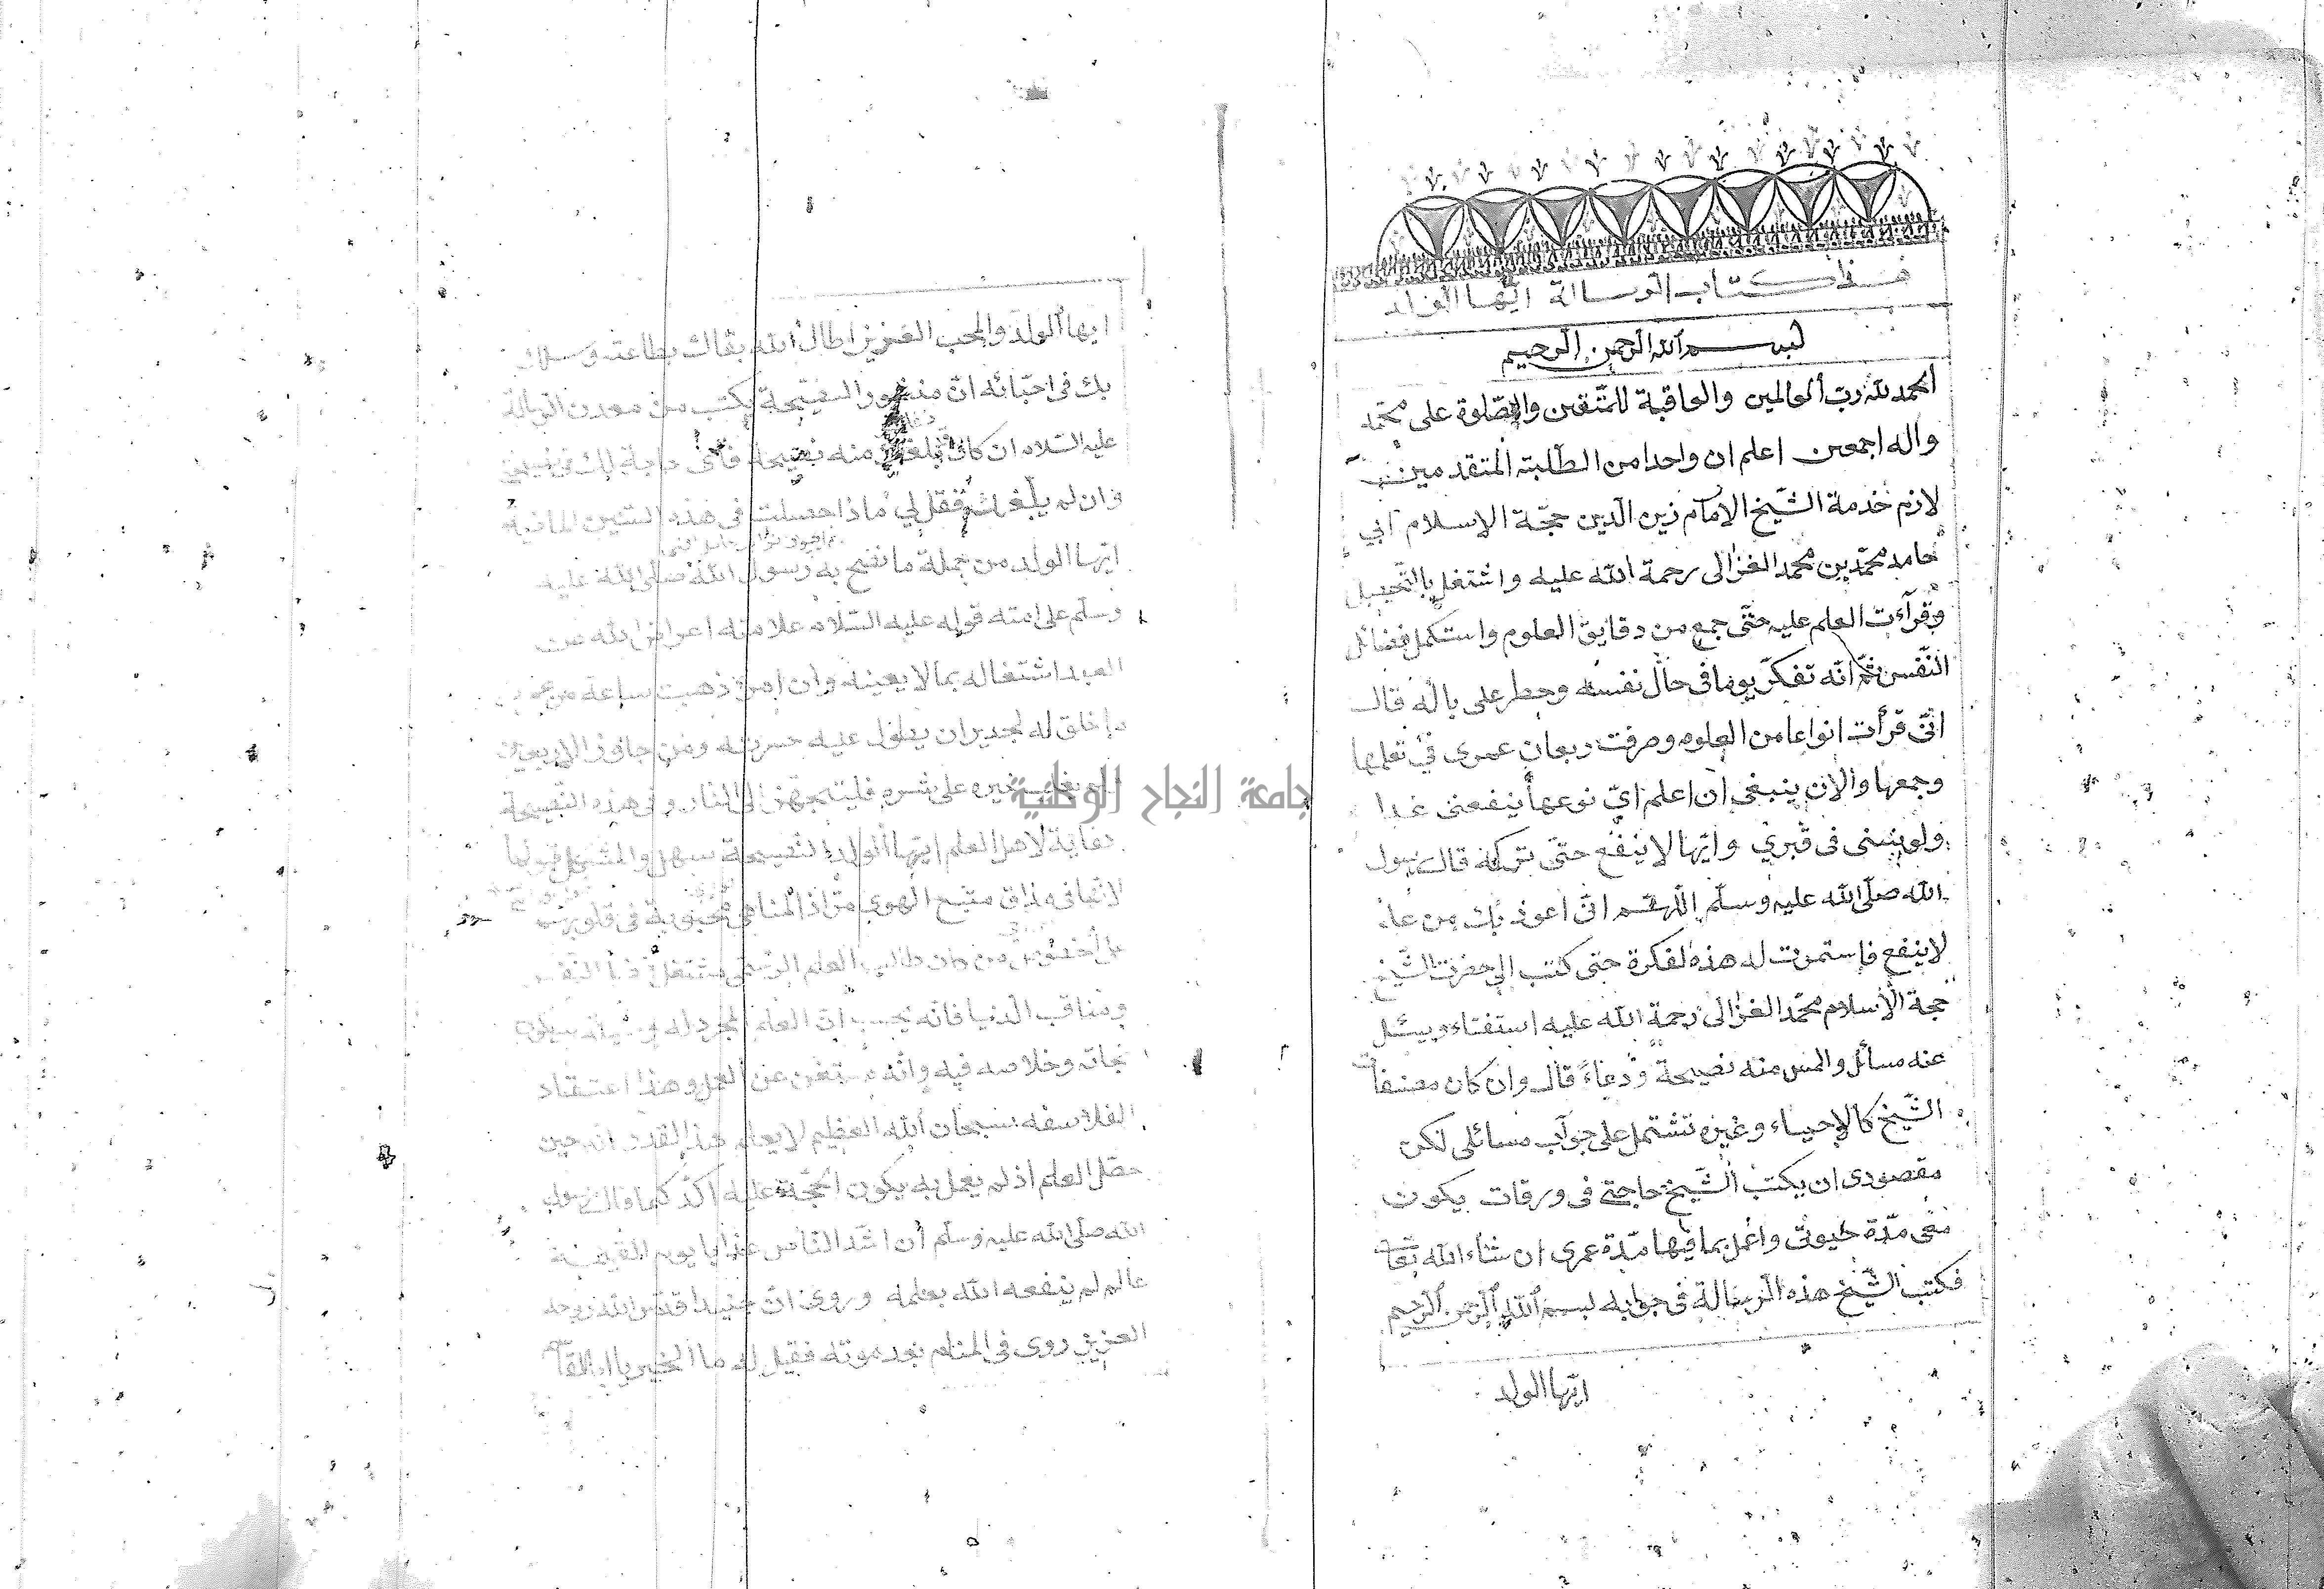 هذا كتاب الرسالة ايّها الولد
بسم الله الرحمن الرحيم
الحمد لله ربّ العالمين والعاقبة للمتّقين والصّلوة على محمّد
واله اجمعين اعلم ان واحدا من الطلبة المتقدمين
لازم خدمة الشّيخ الامام زين الدّين حجّة الاسلام ابي
حامد محمّد بن محمد الغزالى رحمة الله عليه واشتغل بالتّحصيل
وقرآءت العلم عليه حتّى جمع من دقايق العلوم واستكمل فضائل
النّفس ثمّ انّه تفكّر يوما فى حال نفسه وخطر على باله قال
انّى قرأت انواعا من العلوم وصرفت ريعان عمرى فى تعلمها
وجمعها والان ينبغى ان اعلم ايّ نوعها ينفعنى غدا
ويونسنى فى قبرى وايّها لا ينفع حتّى تركه قال رسول
الله صلّى الله عليه وسلّم اللّهمّ انّى اعوذ بك من علم
لا ينفع فاستمرت له هذه لفكرة حتى كتب الى حضرت الشّيخ
حجة الاسلام محمّد الغزالى رحمة الله عليه استفتاء ويسئل
عنه مسائل والمس منه نصيحة ودعاء قال وان كان مصنفات
الشّيخ كالاحياء وغيره تشتمل على جواب مسائلى لكن
مقصودى ان يكتب الشّيخ حاجتى فى ورقات يكون
معى مدّة حيوتى واعمل بما فيها مدّة عمرى ان شاء الله تعا
فكتب الشّيخ هذه الرسالة فى جوابه بسم الله الرحمن الرحيم
ايّها الولد
ايها الولد والمحب العزيز اطال الله بقاك بطاعته وسلك
بك فى احبّائه انّ منشور النصيحة يكتب من معدن الرسالة
عليه السلام ان كان بلغك منه نصيحة فاىّ حاجة لك فى نصيحتى
وان لم يبلّغك فقل لي ماذا حصلت فى هذه السنين الماضية
ايّها الولد من جملة ما نصح به رسول الله صلى الله عليه
وسلّم على امته قوله عليه السّلام علامة اعراض الله عن
العبد اشتغاله بما لا يعينه وان امرئ ذهبت ساعة من عمره
ما خلق له لجدير ان يطول عليه حسرته ومن جاوز الاربعين
ولم يغلب خيره على شره فليتجهّز الى النار وفى هذه النّصيحة
كفاية لاهل العلم ايّها الولد النصيحة سهل والمشكل قبولها
لانّها فى مذاق متبع الهوى مرّ اذ المناهى محبوبة فى قلوبهم
على الخصوص من كان طالب العلم الرّسمى مشتغل
ومناقب الدّنيا فانّه يحسب انّ العلم المجرد له وسيلة سيكون
نجاته وخلاصه فيه وانّه مستغن عن العمل وهذا اعتقاد
الفلاسفه سبحان الله العظيم لا يعلم هذا القدر انه حين
حصّل العلم اذ لم يعمل به يكون الحجّة عليه اكّد كما قال رسول
الله صلّى الله عليه وسلّم ان اشد الناس عذابا يوم القيمة
عالم لم ينفعه الله بعلمه وروى انّ جنيدا قدّس الله روحه
العزيز روى فى المنام بعد موته فقيل له ما الخبر يا ابا القاسم
جامعة النجاح الوطنية